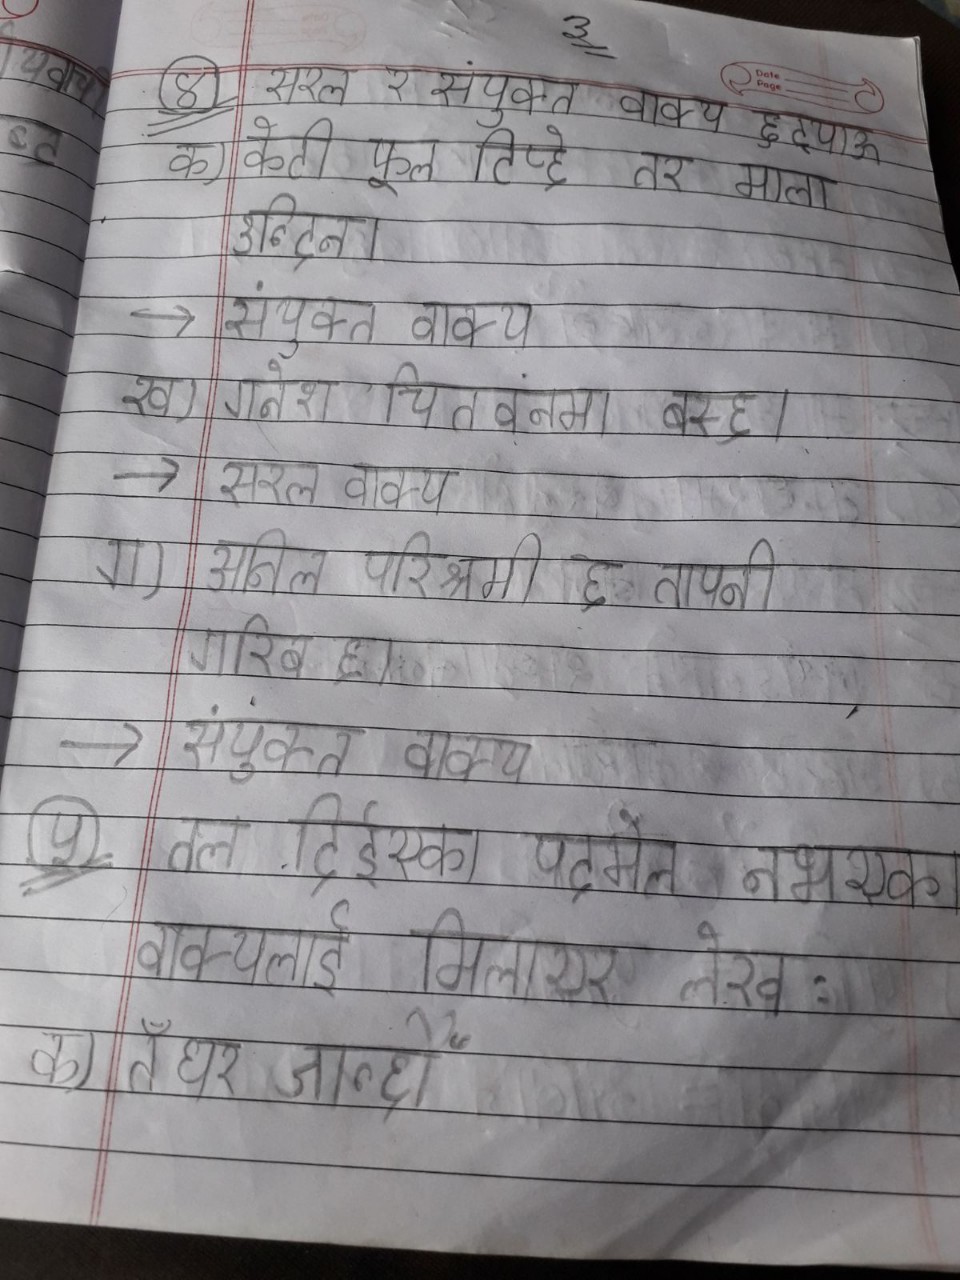 3
Date
Page
४) सरल र संयुक्त वाक्य छुट्याऊ
क) केटी फूल टिप्छे तर माला
उन्दिन।
→ संयुक्त वाक्य
ख) गनेश चितवंनमा बस्छ।
→ सरल वाक्य
ग) अनिल परिश्रमी छ तापनी
गरिब छ।
→ संयुक्त वाक्य
५) तल दिईएका पदमेल नभएका
वाक्यलाई मिलाएर लेख :
क) तँ घर जान्छौं